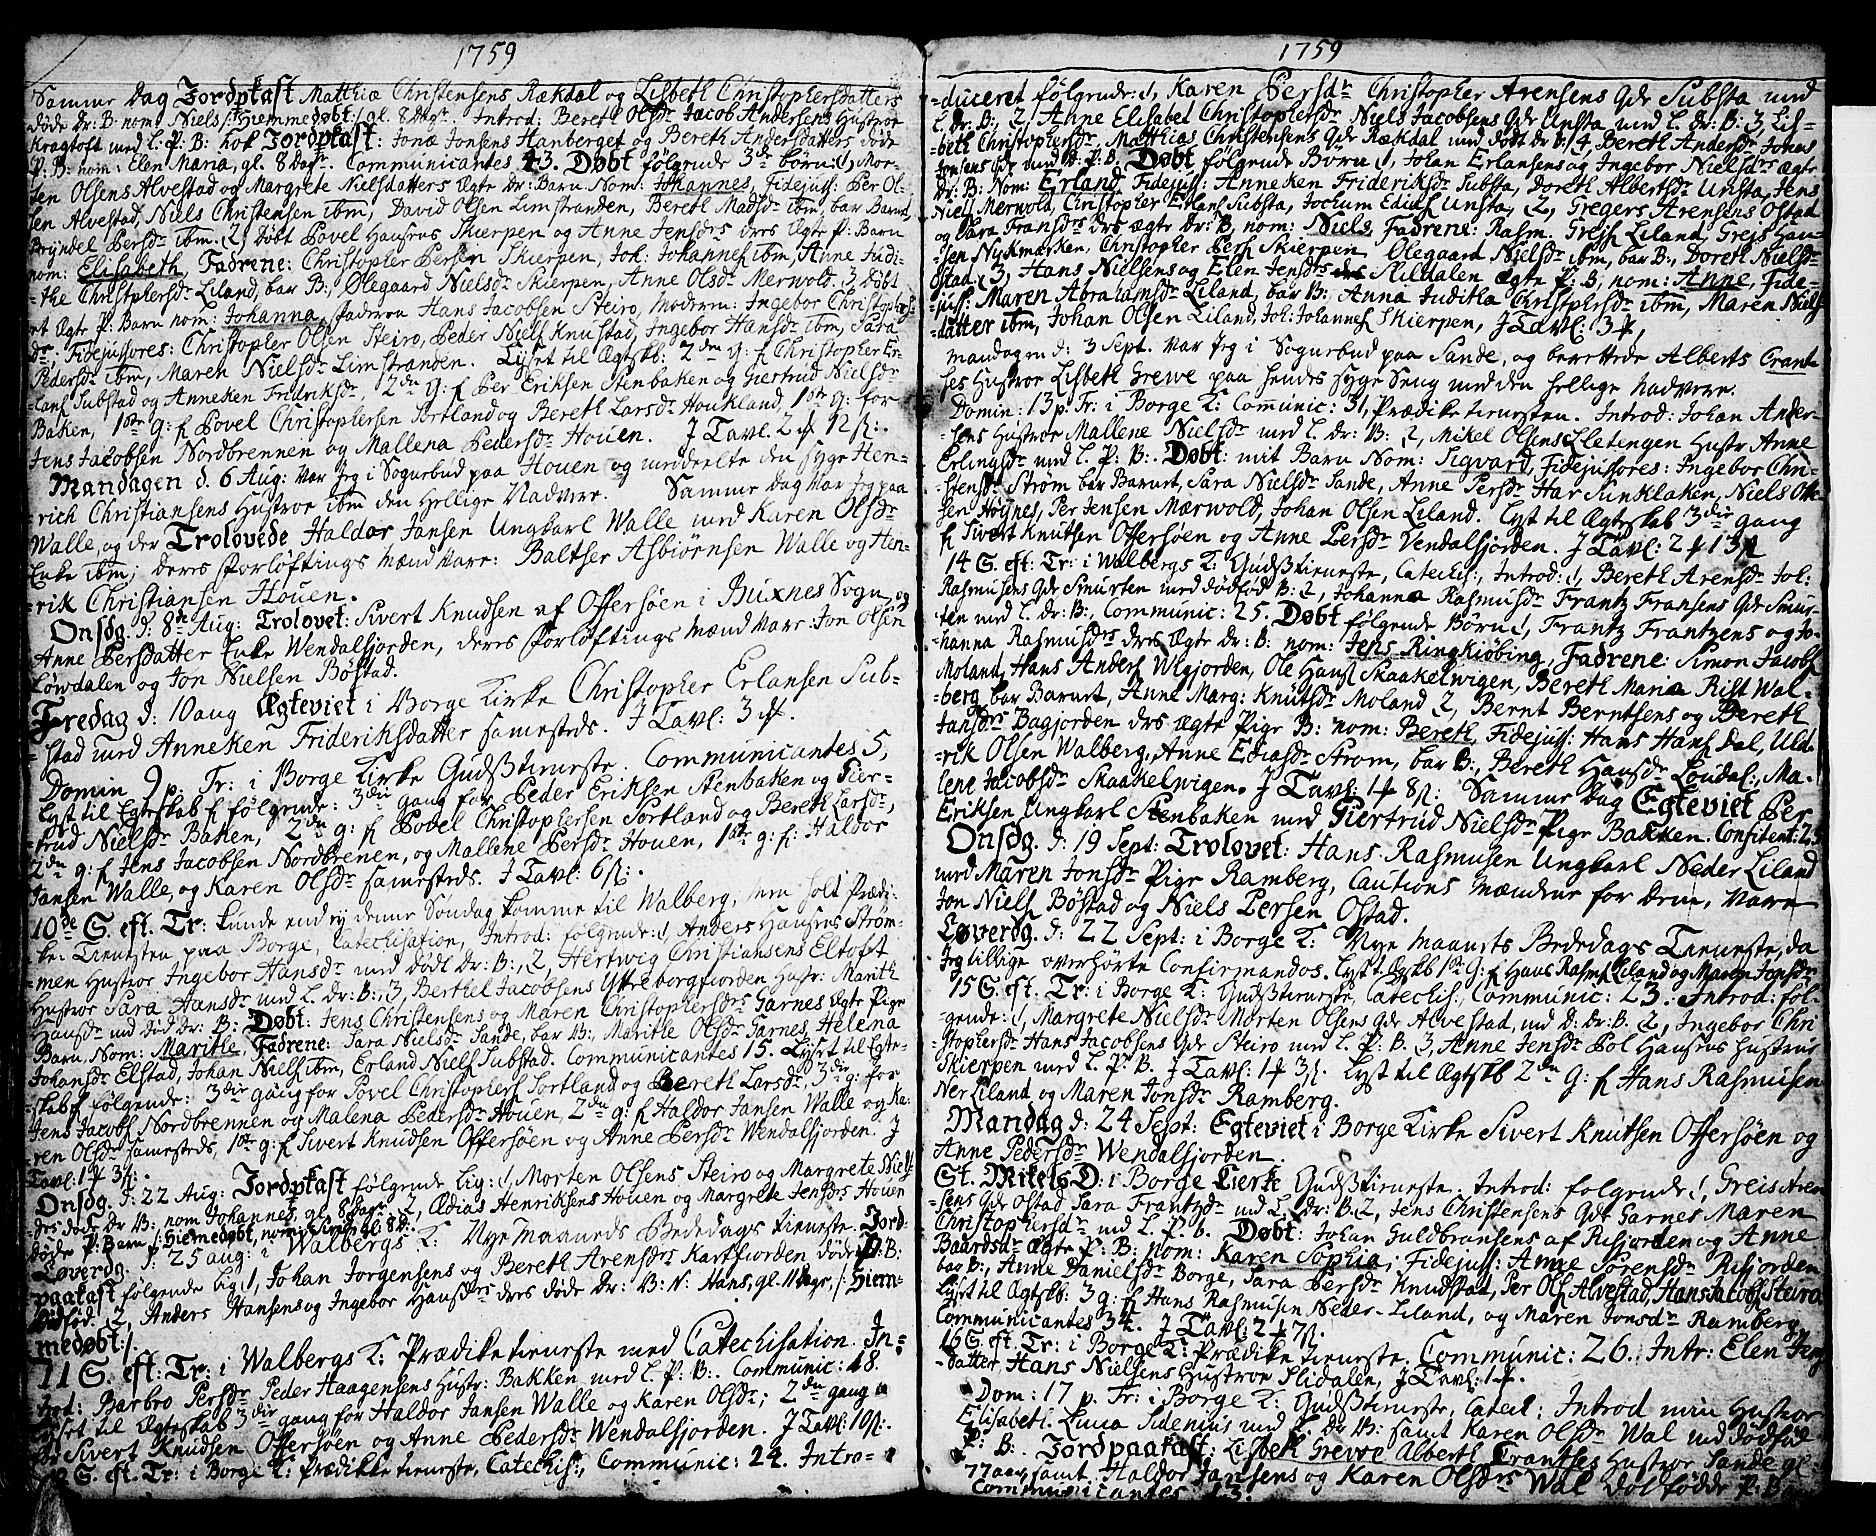 1759
Samme Dag Jordpkast Matthiæ Christensens Rækdal og Lisbeth Christophersdatters
døde Dr: B: nom Niels /: Hiemmedøbt :/ gl. 8 dage. Introd: Bereth Olsdr Jacob Andersens Hustroe
Kragtoft med L. P: B: hok Jordpkast: Jonæ Jonsens Hanberget og Bereth Andersdatters døde
P: B: nom: Elen Maria, gl. 8 dage. Communicantes 43. Døbt følgende 3de børn: 1, Mor-
ten Olsens Alvestad og Margrete Nielsdatters Ægte Dr: Barn Nom: Johannes, Fidejuss: Per Ol-
sen Alvestad, Niels Christensen ibm, David Olsen Limstranden, Bereth Madsdr ibm, bar Barnet,
Brynbel Persdr ibm. 2, Døbt Povel Hansens Skierpen og Anne Jensdrs deres Ægte P: Barn
nom: Elisabeth, Fadrene: Christopher Persen Skierpen, Joh: Johannesf ibm, Anne Judi-
the Christophersdr Liland, bar B:, Olegaard Nielsdr Skierpen, Anne Olsdr Merwold. 3 Døbt
et Ægte P: Barn nom: Johanna, Faderen Hans Jacobsen Steiro, Moderen: Ingebor Christophers-
dr. Fidejussores: Christopher Olsen Steiro, Peder Nielsf Knustad, Ingebor Hansdr ibm, Sara
Pedersdr ibm, Maren Nielsdr Limstranden. Lyset til Ægtskb: 2den g: f Christopher Er-
lansf Substad og Anneken Fridriksdr, 2den g: f Per Eriksen Stenbaken og Giertrud Nielsdr
Baken, 1ste g: f Povel Christophersen Sortland og Bereth Larsdr Houkland, 1ste g: for
Jens Jacobsen Nordbrennen og Mallena Pedersdr Houen. J Tavl: 2 # 12 ß:
Mandagen d. 6 Aug: Var Jeg i Sognebud paa Houen og meddeelte den syge Hen-
rich Christiansens Hustroe ibm den Hellige Nadvere. Samme dag var Jeg paa
Walle, og der Trolovede Haldor Jansen Ungkarl Walle med Karen Olsdr
Enke ibm; deres Forløftings Mænd vare: Baltser Asbiørnsen Walle og Hen-
rik Christiansen Houen.
Onsdg. d: 8de Aug: Trolovet: Sivert Knudsen af Offersøen i Buxnes Sogn, og
Anne Persdatter Enke Wendalsfjorden, deres Forløftings Mænd Vare: Jon Olsen
Løwdalen og Jon Nielsen Bøstad.
Fredag d: 10 aug Ægteviet i Borge Kirke Christopher Erlansen Sub-
stad med Anneken Frideriksdatter samesteds. J Tavl: 3 #.
Domin 9 p. Tr: i Borge Kirke Gudßtieneste. Communicantes 5,
Lyst til Egteskab f følgende: 3die gang for Peder Eriksen Stenbaken og Gier-
trud Nielsdr Baken, 2den g: f Povel Christophersen Sortland og Bereth Larsdr,
2den g: f Jens Jacobsen Nordbrenen, og Mallene Persdr Houen, 1ste g: f: Haldor
Jansen Walle, og Karen Olsdr samesteds. J Tavl: 6 ß:.
10de S. eft. Tr: kunde end ej denne Søndag komme til Walberg, men holt Prædi-
ke Tienesten paa Borge, Catechisation, Introd: følgende: 1, Anders Hansens Strøm-
men Hustroe Ingebor Hansdr med Dødf Dr: B:, 2, Hertwig Christiansens Eltoft
Hustroe Sara Hansdr med L. Dr: B:, 3, Berthel Jacobsens Yttreborgfiorden Hustr: Marith
Hansdr med død Dr: B: Døbt: Jens Christensens og Maren Christophersdrs Garnes Ægte Pige
Barn, Nom: Marithe, Fadrene: Sara Nielsdr Sande, bar B:, Marithe Olsdr Garnes, Helena
Johansdr Elstad, Johan Nielsf ibm, Erland Nielsf Substad. Communicantes 15. Lyset til Egte-
skab f følgende: 3die gang for Povel Christophersf Sortland og Bereth Larsdr, 3die g: for
Jens Jacobsf Nordbrennen og Malena Pedersdr Houen, 2den g: f Haldor Jansen Walle og Ka-
ren Olsdr samesteds, 1ste g: f Sivert Knudsen Offersøen og Anne Persdr Wendalsfjorden. J
Tavl: 1 # 3 ß:.
Onsdg. d: 22 Aug: Jordpkast følgende Lig: 1, Morten Olsens Steiro og Margrete Niels-
drs døde Dr B: nom Johannes, gl. 8 Dage. 2, Ædias Henriksens Houen og Margrete Jensdrs Houen
døde P: Barn /: Hiemedøbt,
Løverdg. d: 25 aug: i Walbergs K: Nye Maaneds Bededags tieneste. Jord-
paakast følgende Lig 1, Johan Jorgensens og Bereth Arensdrs Kartfiorden døde P: B:
Dødfød. 2, Anders Hansens og Ingebor Hansdrs deres døde Dr: B: N: Hans, gl. 11 Dage, /: Hiem-
medøbt :/.
11 S. eft. Tr: i Walbergs K: Prædiketieneste med Catechisation. In-
trod: Barbro Persdr Peder Haagensens Hustr: Bakken med L. P: B:. Communic: 18.
Lyset til Ægteskab 3die gang for Haldor Jansen Walle og Karen Olsdr; 2den gang
for Sivert Knudsen Offersøen og Anne Pedersdr Wendalsfjorden. J Tavl: 10 ß:
12 S. eft. Tr: i Borge K: Prædikke tieneste, Catechis:, Communic: 24. Intro-
1759
-duceret følgende: 1, Karen Persdr Christopher Arensens Qde Substa med
L. Dr: B: 2, Anne Elisabet Christophersdr Niels Jacobsens Qde Unsta med L. Dr: B: 3, Lis-
beth Christophersdr Matthias Christensens Qde Rækdal med dødt Dr: B: 4 Bereth Andersdr Jonas
Jonsens Qde med D. P: B. Døbt følgende Børn 1, Johan Erlansens og Ingebor Nielsdrs ægte
Dr: B: Nom: Erland, Fidejuss: Anneken Frideriksdr Substa, Doreth Albertsdr Unsta, Jens
Nielsf Merwold, Christopher Erlansf Substa, Jochum Ediasf Unsta, 2, Gregers Arensens Ostad
og Sara Fransdrs drs ægte Dr: B, nom: Niels, Fadrene: Rasm. Grejsf Liland, Grejs Han-
sen Nykmarken, Christopher Persf Skierpen, Olegaard Nielsdr ibm, bar B:, Doreth Nielsdr
Ostad, 3, Hans Nielsens og Elen Jensdrs Slidalen Ægte P: B, nom: Anne, Fide-
juss: Maren Abrahamsdr Liland, bar B:, Anna Juditha Christophersdr ibm, Maren Niels-
datter ibm, Johan Olsen Liland, Joh: Johannesf Skierpen, J Tavl: 3 #,
Mandagen d: 3 Sept. var Jeg i Sognebud paa Sande, og berettede Alberts Crant-
ses Hustroe Lisbeth Grewe paa hendes syge Seng med den Hellige Nadvere.
Domin: 13 p. Tr: i Borge K: Communic: 31, Prædike tienesten. Introd: Johan Ander-
sens Hustroe Mallene Nielsdr med L. Dr: B: 2, Mikel Olsens Lletingen Hustr Anne
Erlingsdr med L. P: B:. Døbt: mit Barn Nom: Sigvard, Fidejussores: Ingebor Chri-
stensdr Strøm bar Barnet, Sara Nielsdr Sande, Anne Persdr Har Sunklaken, Niels Ole-
sen Høynes, Per Jensen Mærwold, Johan Olsen Liland. Lyst til Ægteskab 3die gang
f Sivert Knutsen Offersøen og Anne Persdr Vendalsfjorden. J Tavl: 2 # 13 ß
14 S. eft: Tr: i Walbergs K: Gudßtieneste, Catechis:, Introd: 1, Bereth Arensdr Joh:
Rasmusens Qde Smurten med Dødfød B: 2, Johanna Rasmusdr Frantz Fransens Qde Smur-
ten med L. Dr: B:, Communic: 25. Døbt følgende Børn 1, Frantz Frantzens og Jo-
hanna Rasmusdrs dres Ægte Dr: B: nom: Jens Ringkiøbing, Fadrene: Simon Jacobsf
Moland, Hans Andersf Wlgjorden, Ole Hansf Skaakelwigen, Bereth Maria Rist Wal-
berg, bar Barnet, Anne Marg: Knutsdr Moland 2, Bernt Berntsens og Bereth
Jansdrs Bagjorden drs ægte Pige B: nom: Bereth, Fidejuss: Hans Hansf Dal, Uld-
rik Olsen Walberg, Anne Ediasdr Strøm, bar B:, Bereth Hansdr Loudal:, Ma-
lene Jacobsdr Skaakelwigen. J Tavl: 1 # 8 ß: Samme dag Egteviet Per
Eriksen Ungkarl Stenbaken med Giertrud Nielsdr Pige Bakken. Confitent: 25
Onsdg. d: 19 Sept: Trolovet: Hans Rasmusen Ungkarl Neder Liland
med Maren Jonsdr Pige Ramberg, Cautions Mændene for dem, vare
Jon Nielsf Bøstad og Niels Persen Ostad.
Løverdg. d: 22 Sept: i Borge K: Nye Maanets Bededags Tieneste, da
Jeg tillige overhørte Confirmandos. Lyst Ægtskb 1ste G: f Hans Rasmf Liland og Maren Jonsdr
15 S. eft. Tr: i Borge K: Gudßtieneste, Catechis:, Communic: 23. Introd: føl-
gende: 1, Margrete Nielsdr Morten Olsens Qde Alvestad, med D: Dr: B. 2, Ingebor Chri
stophersdr Hans Jacobsens Qde Steiro med L. P: B. 3, Anne Jensdr Pol Hansens Hustrue
Skierpen med L. P: B. J Tavl: 1 # 3 ß. Lyst til Ægtskb 2den G: f Hans Rasmusen
Ner Liland og Maren Jonsdr Ramberg.
Mandag d: 24 Sept: Egteviet i Borge Kirke Sivert Knutsen Offersøen og
Anne Pedersdr Wendalsfjorden.
St. Mikels D: i Borge Kierke Gudßtieneste. Introd: følgende 1, Greis Aren-
sens Qde Ostad Sara Frantzdr med L. Dr: B. 2, Jens Christensens Qde Garnes Maren
Christophersdr med L. P. b. Døbt: Johan Guldbransens af Risjorden og Anne
Baardsdr Ægte P: B: nom: Karen Sophia, Fidejuss: Anne Sørensdr Risjorden
bar B:, Anne Danielsdr Borge, Sara Persdr Knudstad, Per Olsf Alvestad, Hans Jacobsf Steiro
Lyst til Ægtskb: 3 g: f Hans Rasmusen Neder-Liland, og Maren Jonsdr Ramberg
Communicantes 34. J Tavl: 2 # 7 ß.
16 S. eft. Tr: i Borge K: Prædiketieneste. Communic: 26. Intr: Elen Jens-
datter, Hans Nielsens Hustroe Slidalen, J Tavl: 1 #.
Dom: 17 p. Tr: i Borge K: Gudßtieneste, Catech: Introd min Hustroe
Elisabeth Lima Sidenius med L Dr B: samt Karen Olsdr Wal med Dødfød
P: B:. Jordpaakast: Lisbeth Grewe Alberth Crantses Hustroe Sande gl.
77 aar, samt. Haldor Jansens og Karen Olsdrs Wal Dødfødde P: Barn
Communicantes 13.